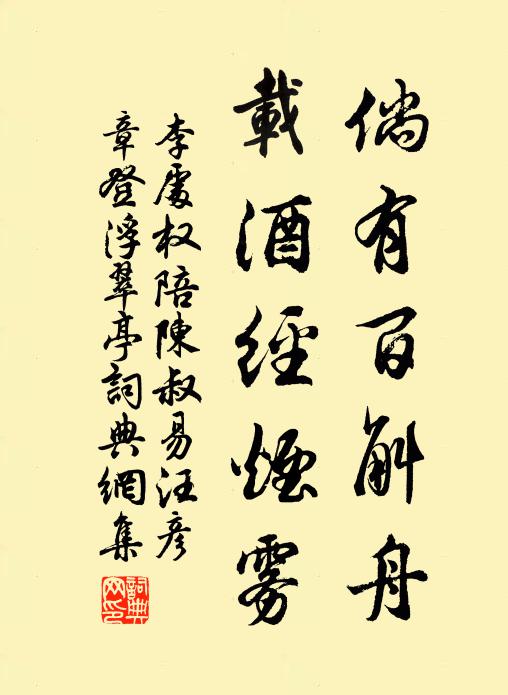 倘有百斛舟
載酒經煙霧
李處权陪陳叔易汪彥
章登浮翠亭詞典網集
詞典网印